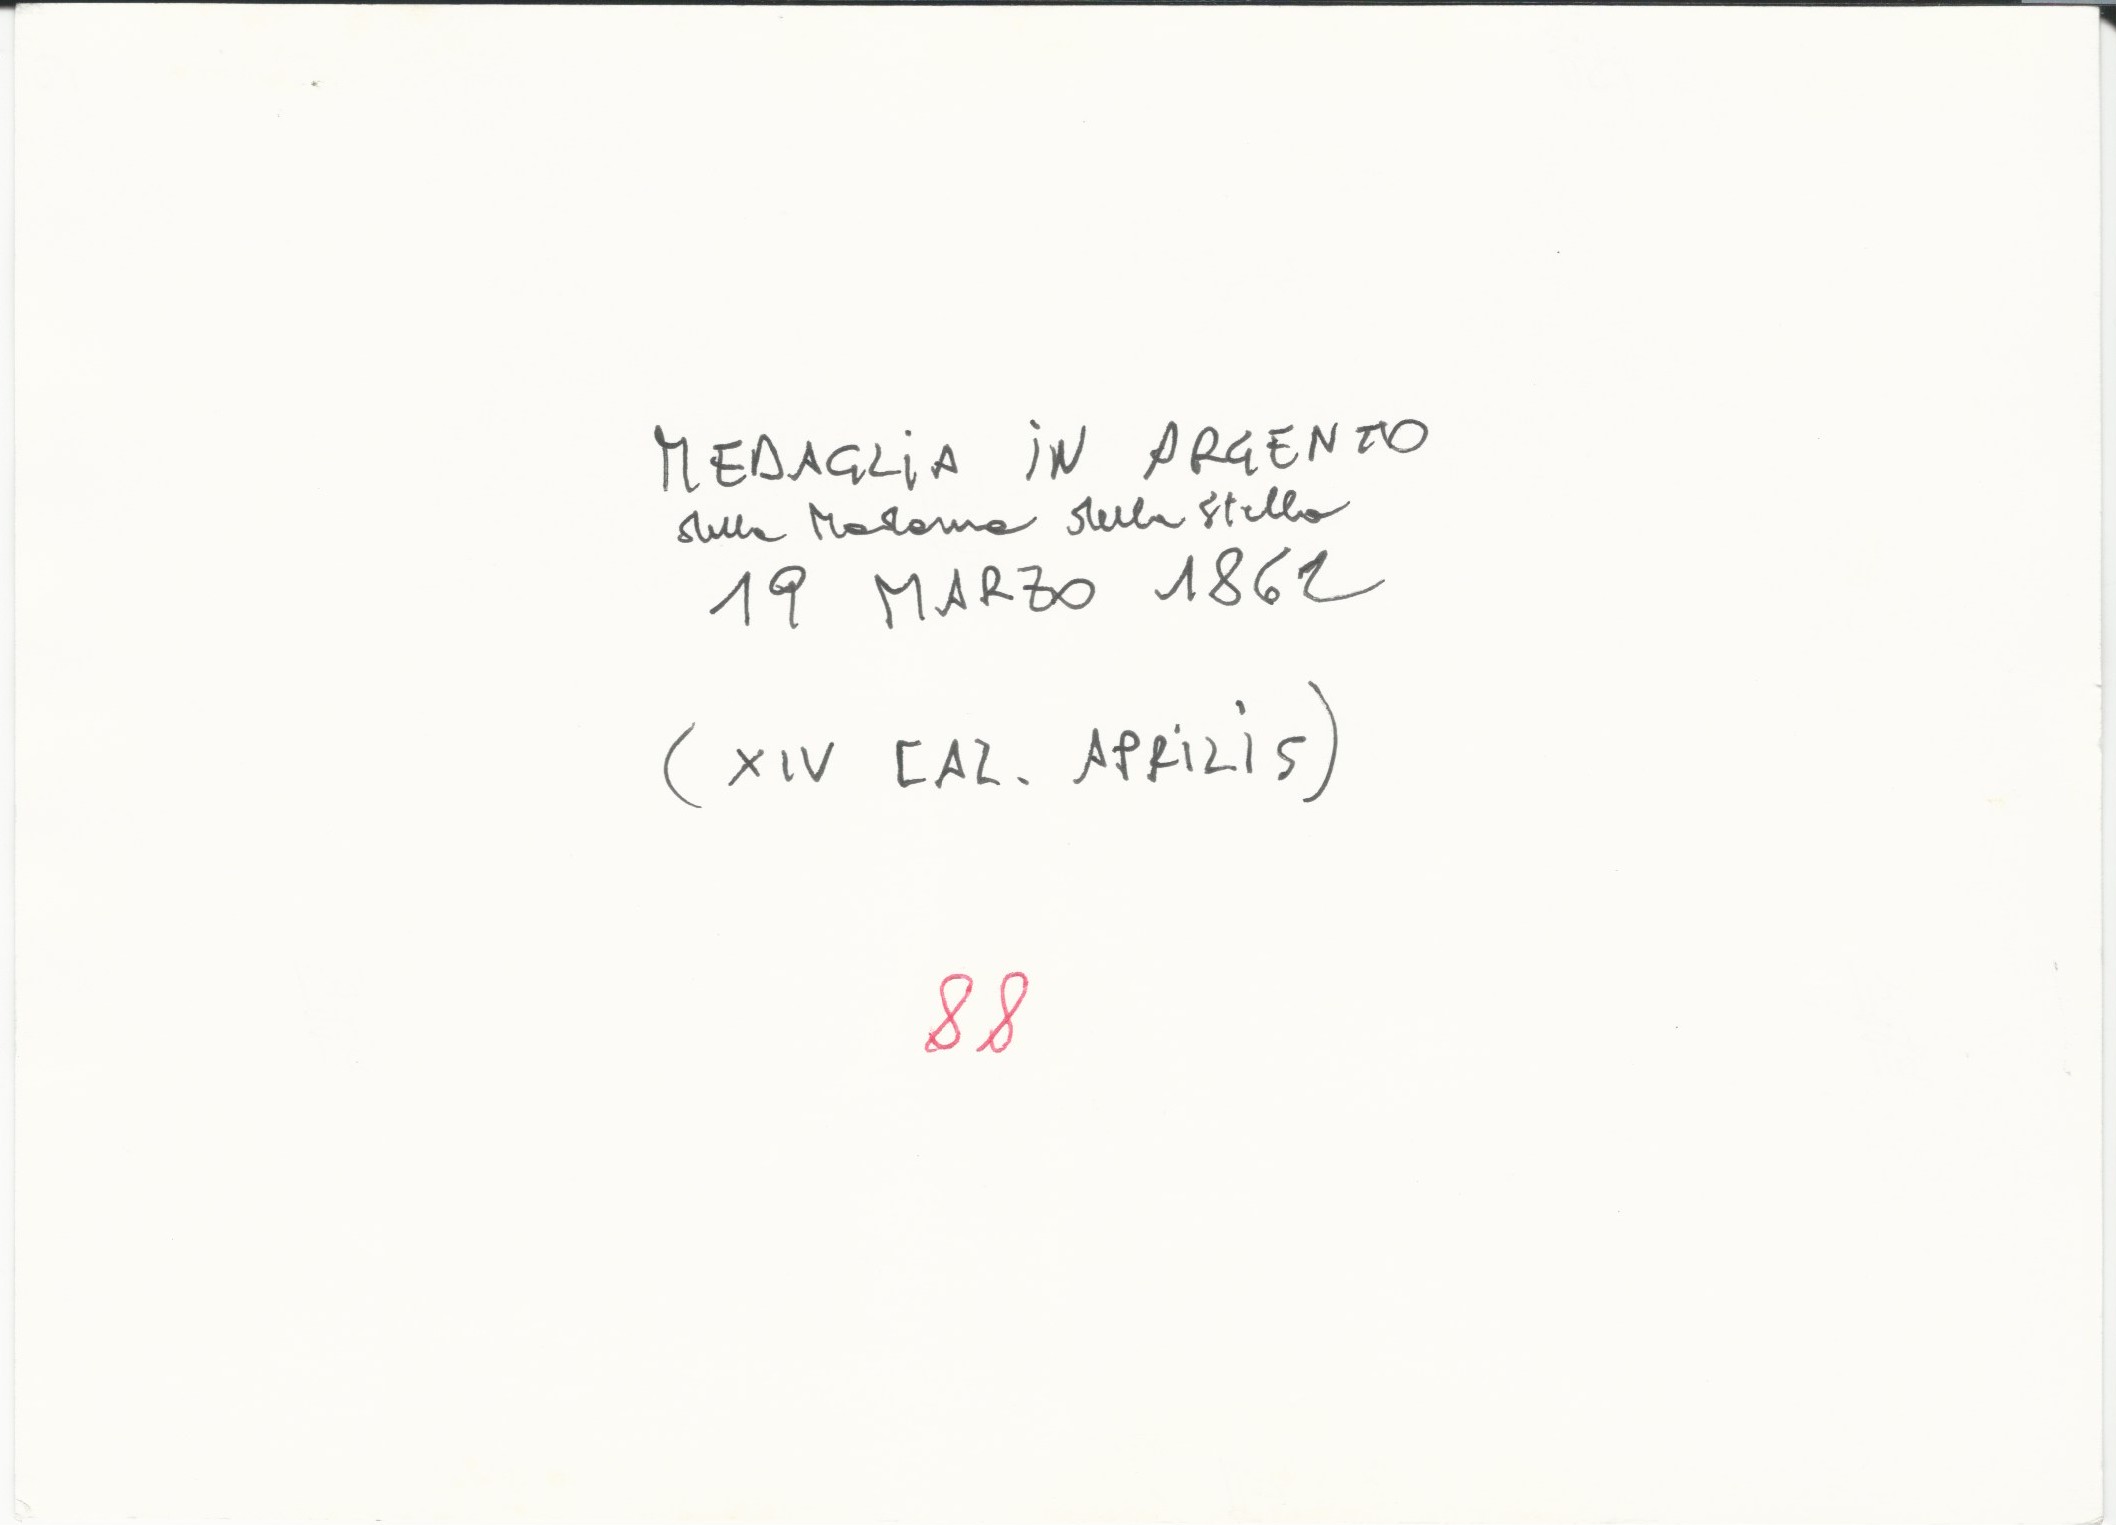 MEDAGLIA IN ARGENTO
della Madonna della Stella
19 MARZO 1862
(XIV CAL. APRILIS)
88